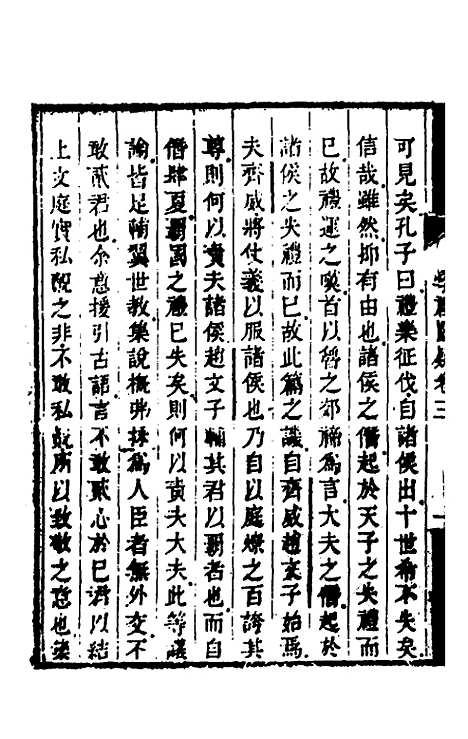 可見矣孔子曰禮樂征伐自諸侯出十世希不失矣
信哉雖然抑有由也諸侯之僭起於天子之失禮而
已故禮運之嘆首以魯之郊禘為言大夫之僭起於
諸侯之失禮而已故此篇之譏自齊威趙文子始焉
夫齊威將仗義以服諸侯也乃自以庭燎之百誇其
尊則何以責夫諸侯趙文子輔其君以霸者也而自
僭肆夏霸國之禮已失矣則何以責夫大夫此等議
論皆足輔翼世教集說概弗採為人臣者無外交不
敢貳君也余意援引古語言不敢貳心於己君以結
上文庭實私覿之非不敢私覿所以致敬之意也
卷三